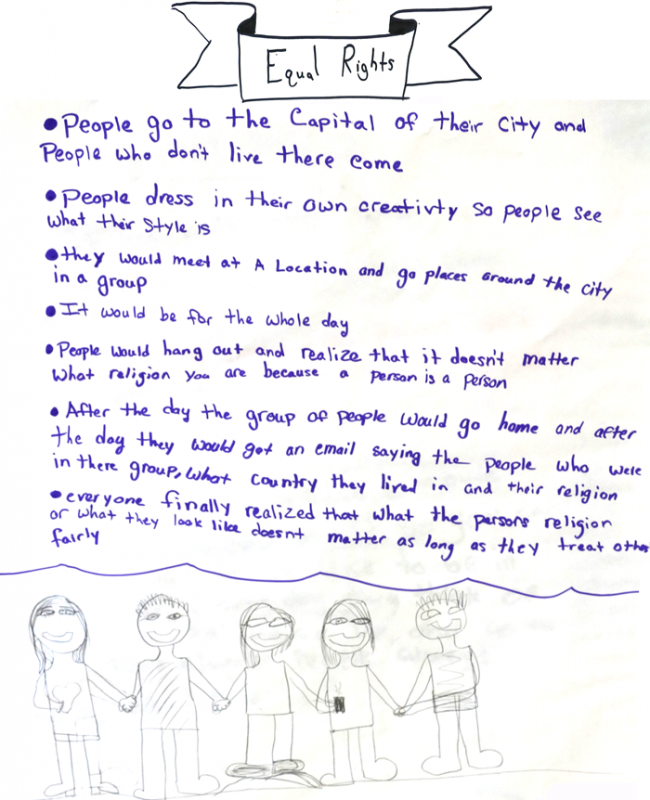 Equal Rights
• People go to the Capital of their City and
People who don't live there come
• People dress in their own creativty so people see
what their style is
• they would meet at A Location and go places around the city
in a group
• It would be for the whole day
• People would hang out and realize that it doesn't matter
what religion you are because a person is a person
• After the day the group of people would go home and after
the day they would get an email saying the people who were
in there group, what country they lived in and their religion
• everyone finally realized that what the persons religion
or what they look like doesnt matter as long as they treat other
fairly